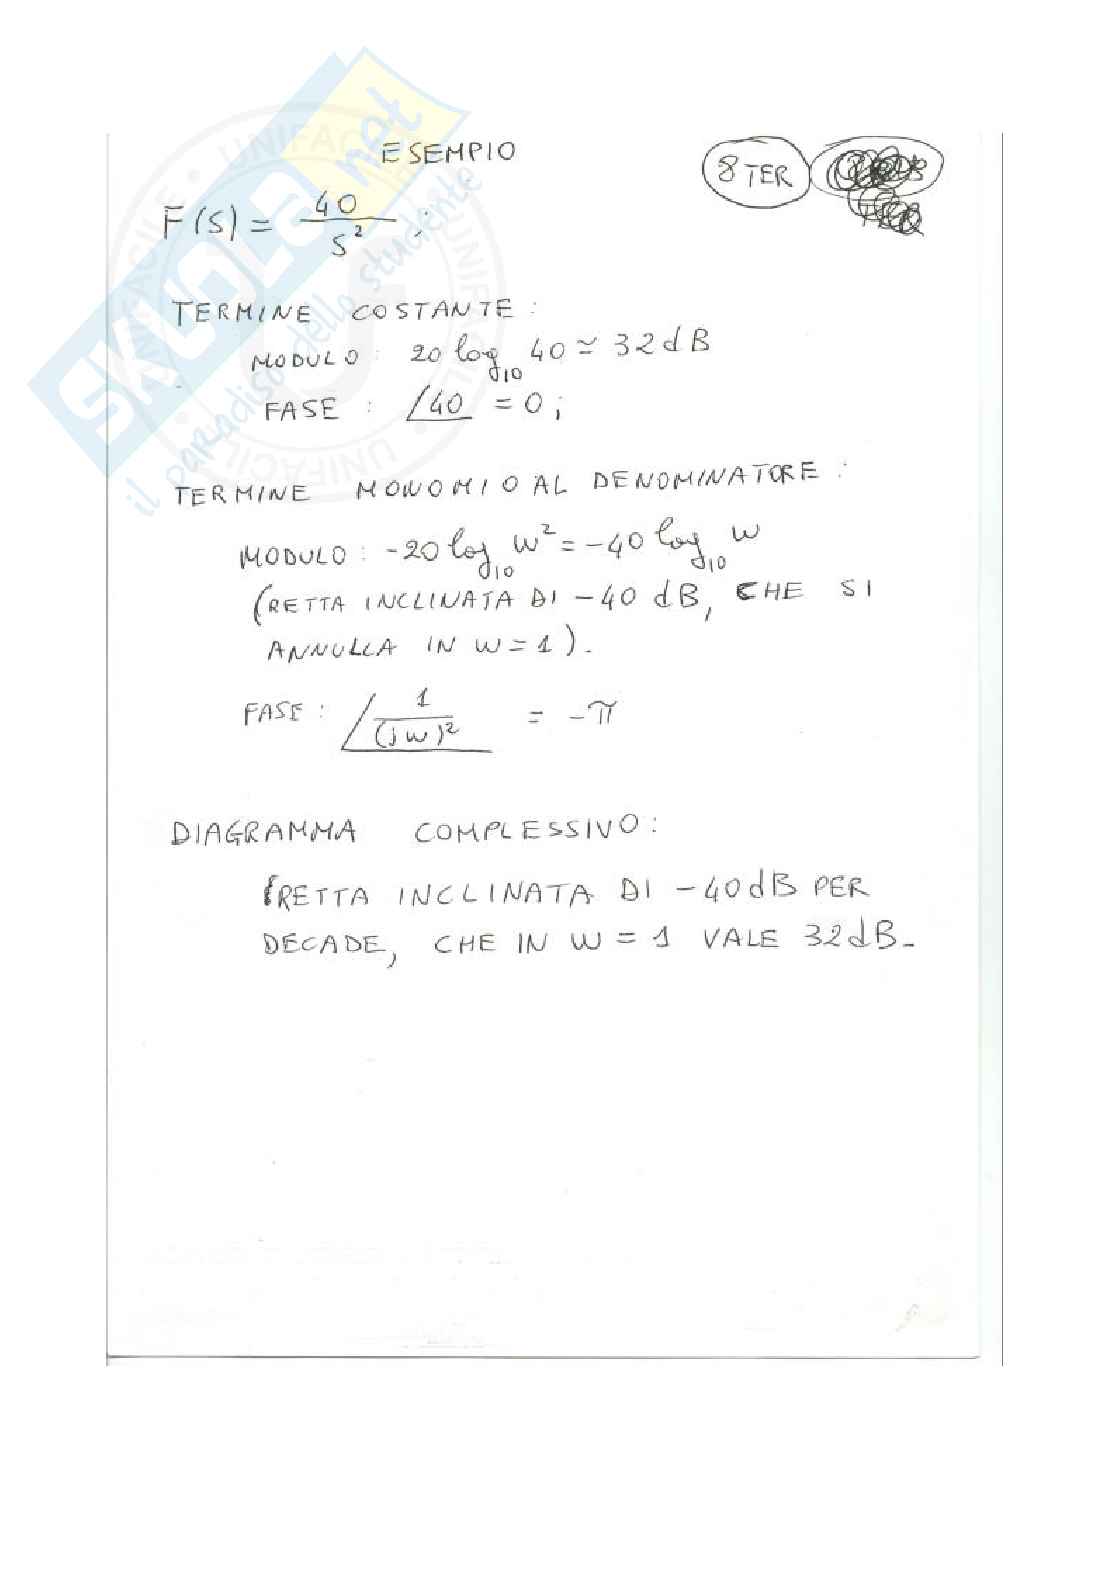 ESEMPIO
8 TER
F(s) = 40 / s² ;
TERMINE COSTANTE :
MODULO : 20 log₁₀ 40 ≃ 32 dB
FASE : ∠40 = 0 ;
TERMINE MONOMIO AL DENOMINATORE :
MODULO : -20 log₁₀ w² = -40 log₁₀ w
(RETTA INCLINATA DI -40 dB, CHE SI
ANNULLA IN w = 1 ).
FASE : ∠ 1 / (jw)² = -π
DIAGRAMMA COMPLESSIVO :
RETTA INCLINATA DI -40 dB PER
DECADE, CHE IN w = 1 VALE 32 dB.
SKUOLA.net
il paradiso dello studente
UNIFACILE · UNIFACILE · UNIFACILE